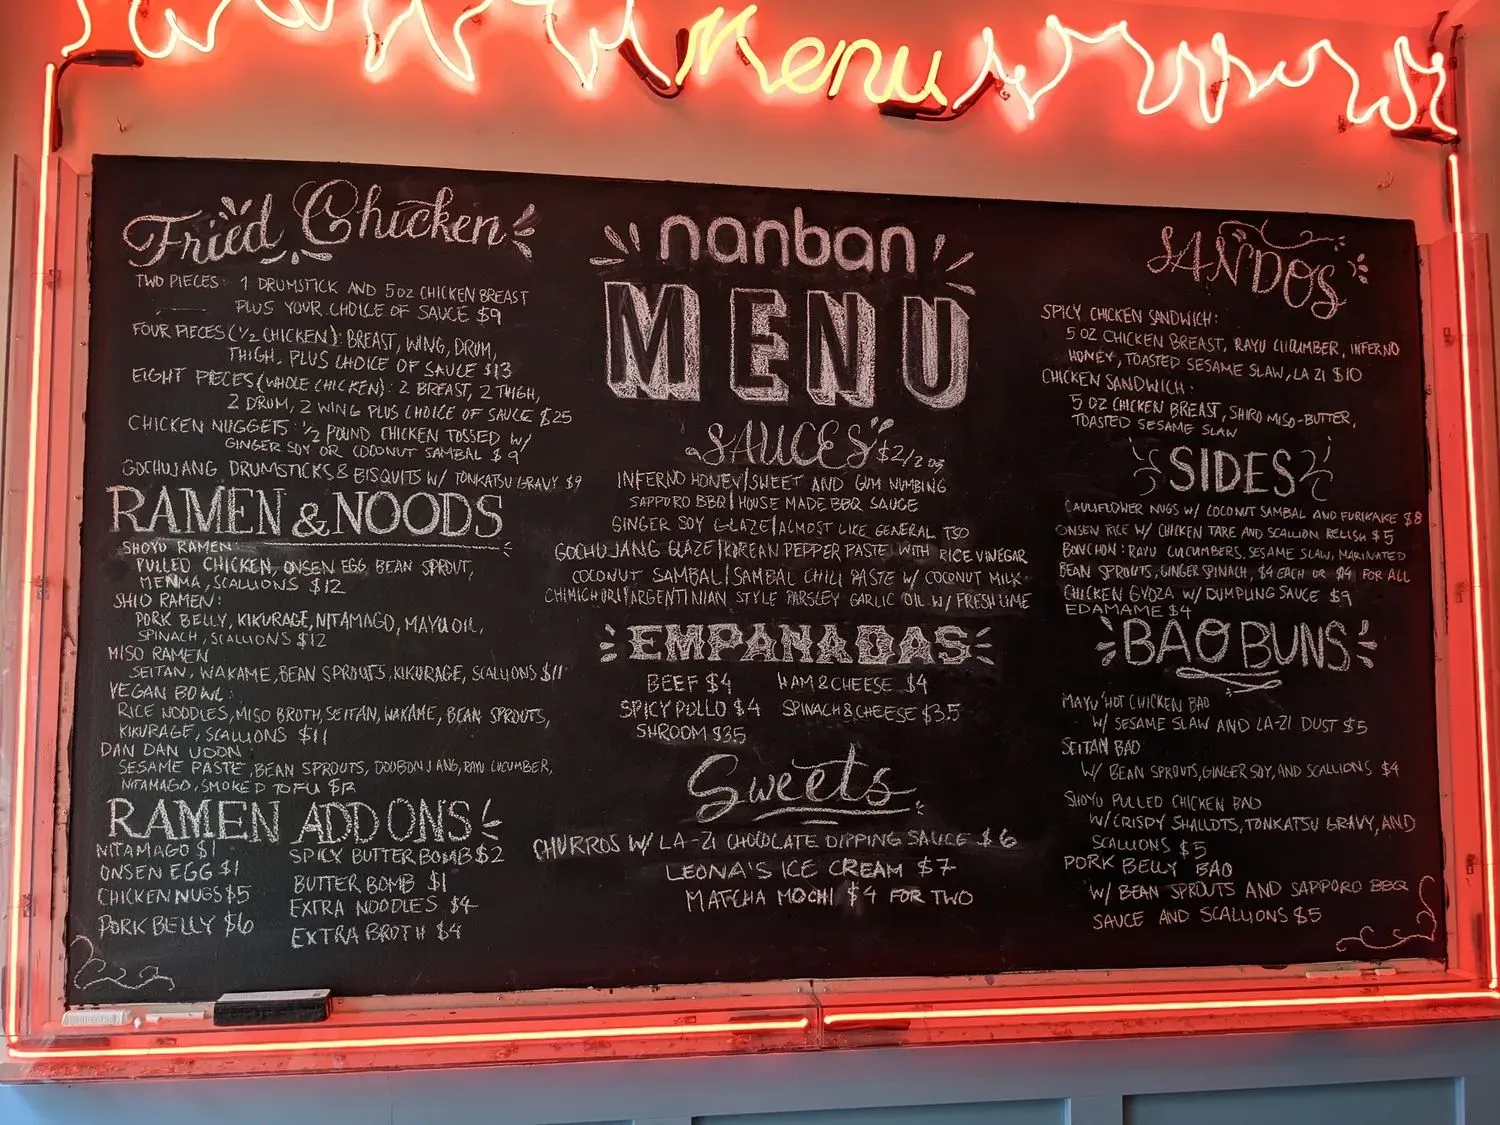 Menu
Fried Chicken
TWO PIECES: 1 DRUMSTICK AND 5 OZ CHICKEN BREAST
PLUS YOUR CHOICE OF SAUCE $9
FOUR PIECES (1/2 CHICKEN): BREAST, WING, DRUM,
THIGH, PLUS CHOICE OF SAUCE $13
EIGHT PIECES (WHOLE CHICKEN): 2 BREAST, 2 THIGH,
2 DRUM, 2 WING PLUS CHOICE OF SAUCE $25
CHICKEN NUGGETS: 1/2 POUND CHICKEN TOSSED W/
GINGER SOY OR COCONUT SAMBAL $9
GOCHUJANG DRUMSTICKS & BISQUITS W/ TONKATSU GRAVY $9
RAMEN & NOODS
SHOYU RAMEN:
PULLED CHICKEN, ONSEN EGG, BEAN SPROUT,
MENMA, SCALLIONS $12
SHIO RAMEN:
PORK BELLY, KIKURAGE, NITAMAGO, MAYU OIL,
SPINACH, SCALLIONS $12
MISO RAMEN
SEITAN, WAKAME, BEAN SPROUTS, KIKURAGE, SCALLIONS $11
VEGAN BOWL:
RICE NOODLES, MISO BROTH, SEITAN, WAKAME, BEAN SPROUTS,
KIKURAGE, SCALLIONS $11
DAN DAN UDON:
SESAME PASTE, BEAN SPROUTS, DOUBONJANG, RAYU CUCUMBER,
NITAMAGO, SMOKED TOFU $12
RAMEN ADD ONS
NITAMAGO $1
ONSEN EGG $1
CHICKEN NUGS $5
PORK BELLY $6
SPICY BUTTER BOMB $2
BUTTER BOMB $1
EXTRA NOODLES $4
EXTRA BROTH $4
nanban
MENU
SAUCES $2/2 oz
INFERNO HONEY | SWEET AND GUM NUMBING
SAPPORO BBQ | HOUSE MADE BBQ SAUCE
GINGER SOY GLAZE | ALMOST LIKE GENERAL TSO
GOCHUJANG GLAZE | KOREAN PEPPER PASTE WITH RICE VINEGAR
COCONUT SAMBAL | SAMBAL CHILI PASTE W/ COCONUT MILK
CHIMICHURI | ARGENTINIAN STYLE PARSLEY GARLIC OIL W/ FRESH LIME
EMPANADAS
BEEF $4 HAM & CHEESE $4
SPICY POLLO $4 SPINACH & CHEESE $3.5
SHROOM $3.5
Sweets
CHURROS W/ LA-ZI CHOCOLATE DIPPING SAUCE $6
LEONA'S ICE CREAM $7
MATCHA MOCHI $4 FOR TWO
SANDOS
SPICY CHICKEN SANDWICH:
5 OZ CHICKEN BREAST, RAYU CUCUMBER, INFERNO
HONEY, TOASTED SESAME SLAW, LA ZI $10
CHICKEN SANDWICH:
5 OZ CHICKEN BREAST, SHIRO MISO-BUTTER,
TOASTED SESAME SLAW
SIDES
CAULIFLOWER NUGS W/ COCONUT SAMBAL AND FURIKAKE $8
ONSEN RICE W/ CHICKEN TARE AND SCALLION RELISH $5
BONCHON: RAYU CUCUMBERS, SESAME SLAW, MARINATED
BEAN SPROUTS, GINGER SPINACH, $4 EACH OR FOR ALL
CHICKEN GYOZA W/ DUMPLING SAUCE $9
EDAMAME $4
BAO BUNS
MAYU "HOT CHICKEN BAO
W/ SESAME SLAW AND LA-ZI DUST $5
SEITAN BAO
W/ BEAN SPROUTS, GINGER SOY, AND SCALLIONS $4
SHOYU PULLED CHICKEN BAO
W/ CRISPY SHALLOTS, TONKATSU GRAVY, AND
SCALLIONS $5
PORK BELLY BAO
W/ BEAN SPROUTS AND SAPPORO BBQ
SAUCE AND SCALLIONS $5